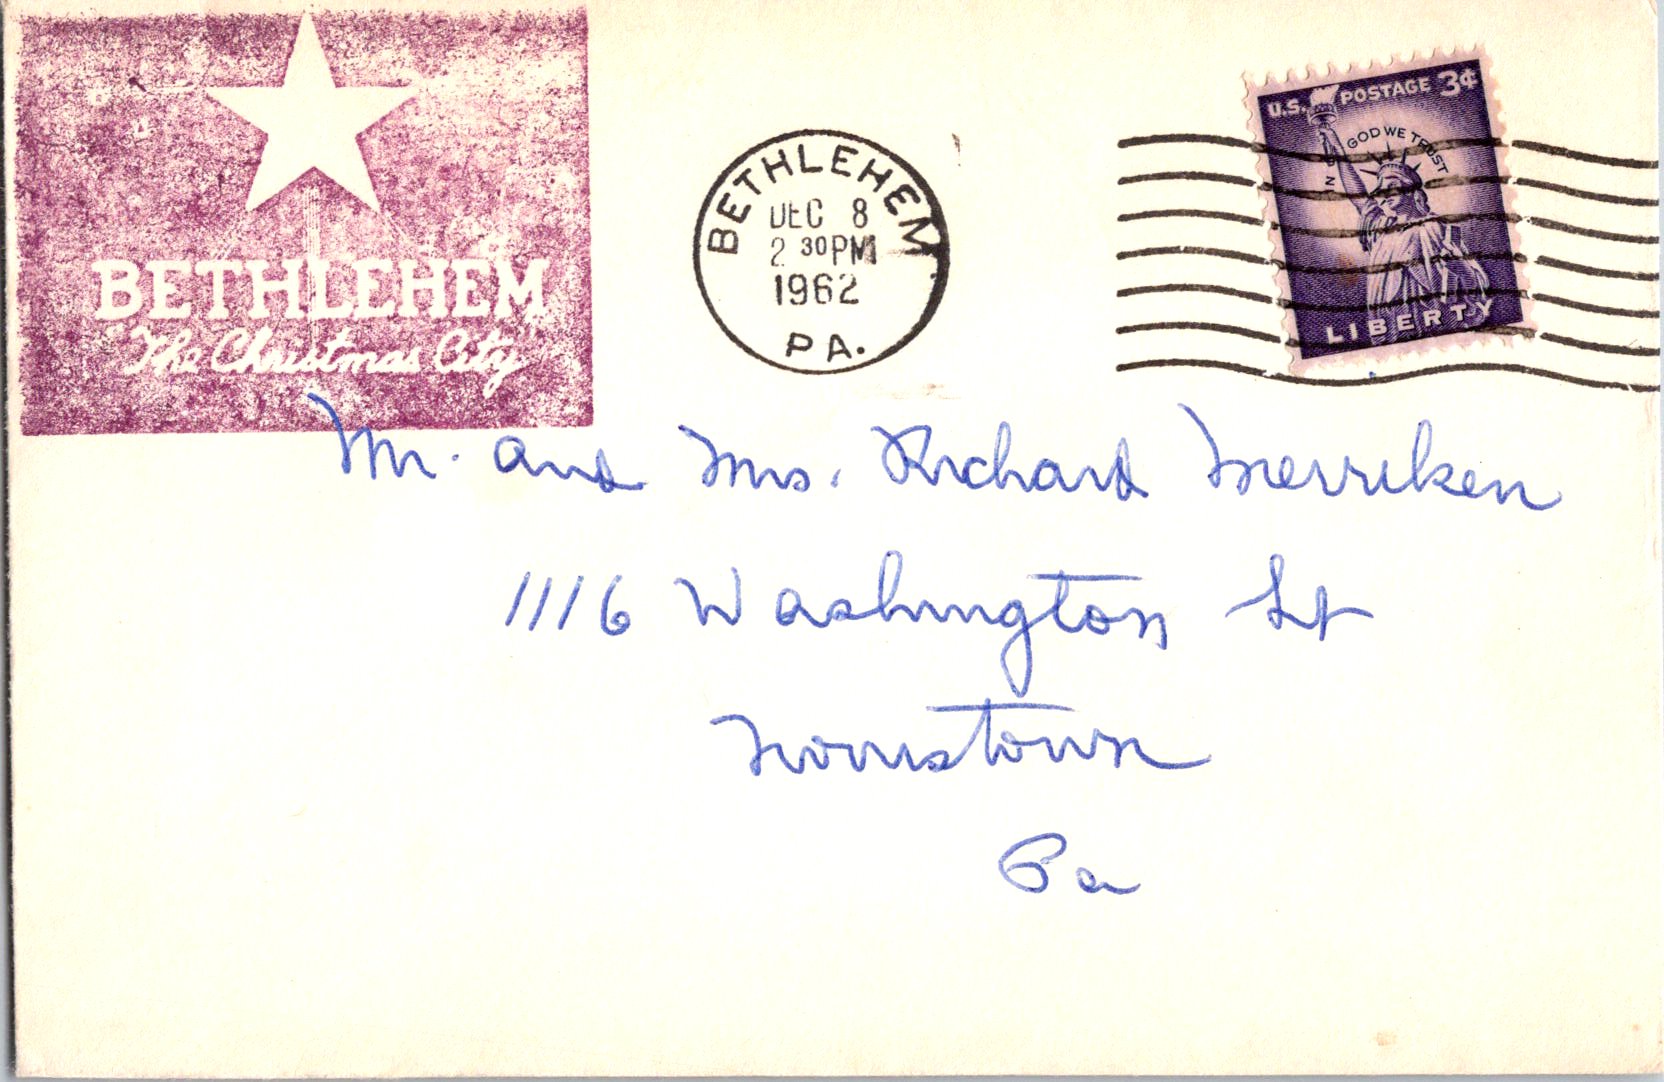 BETHLEHEM
"The Christmas City"
BETHLEHEM
DEC 8
2 30 PM
1962
PA.
U.S. POSTAGE 3¢
IN GOD WE TRUST
LIBERTY
Mr. and Mrs. Richard Merriken
1116 Washington St
Norristown
Pa